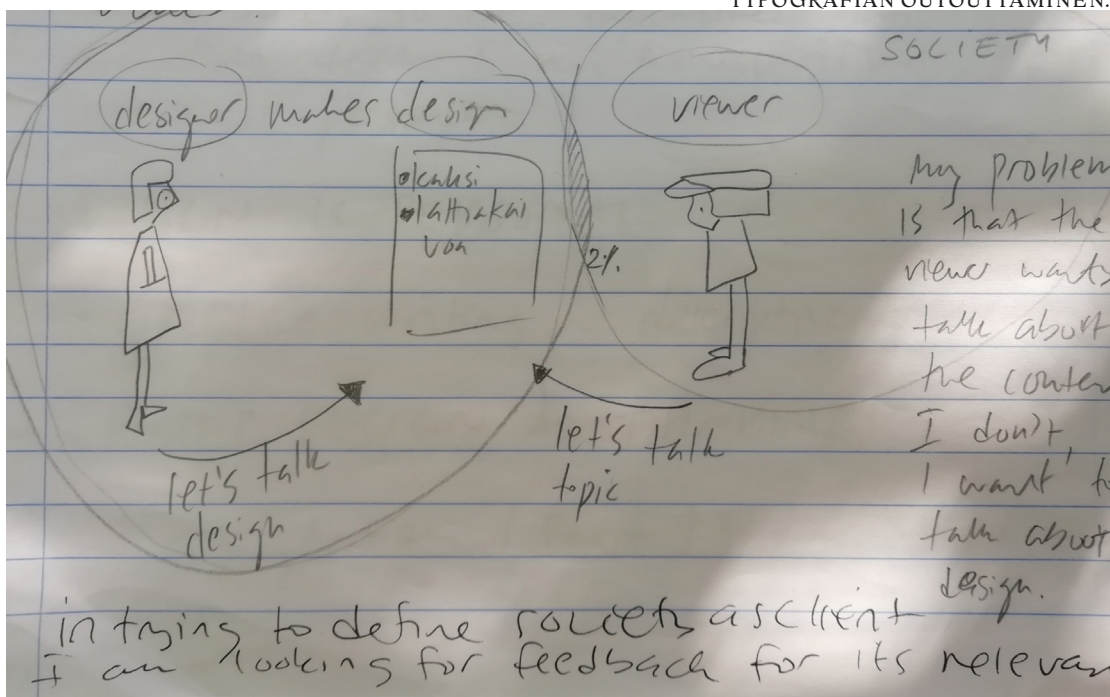 TYPOGRAFIAN OUTOUTTAMINEN.
SOCIETY
designer makes design
viewer
kaksi
lattiakai
von
2%.
let's talk
design
let's talk
topic
My problem
is that the
viewer wants
talk about
the conten
I don't,
I want t
talk about
design.
in trying to define society as client
I am looking for feedback for its relevan